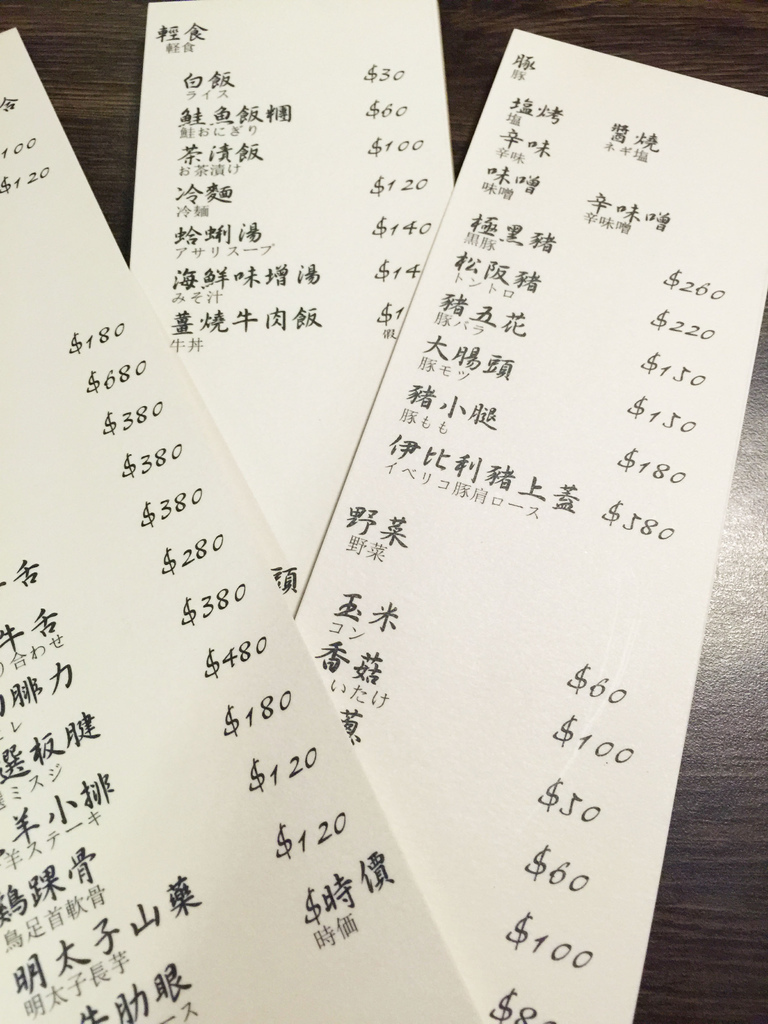 輕食
軽食
白飯 $30
ライス
鮭魚飯糰 $60
鮭おにぎり
茶漬飯 $100
お茶漬け
冷麵 $120
冷麺
蛤蜊湯 $140
アサリスープ
海鮮味增湯 $14
みそ汁
薑燒牛肉飯 $1
牛丼
頭
豚
豚
塩烤 醬燒
塩 ネギ塩
辛味
辛味
味噌 辛味噌
味噌 辛味噌
極黑豬 $260
黒豚
松阪豬 $220
トントロ
豬五花 $150
豚バラ
大腸頭 $150
豚モツ
豬小腿 $180
豚もも
伊比利豬上蓋 $580
イベリコ豚肩ロース
野菜
野菜
玉米 $60
コン
香菇 $100
いたけ
$50
$60
$100
$8
100
$120
$180
$680
$380
$380
$380
$280
$380
$480
$180
$120
$120
$時價
時価
舌
牛舌
り合わせ
腓力
ヒレ
選板腱
ミスジ
羊小排
羊ステーキ
鷄踝骨
鳥足首軟骨
明太子山藥
明太子長芋
牛肋眼
ース